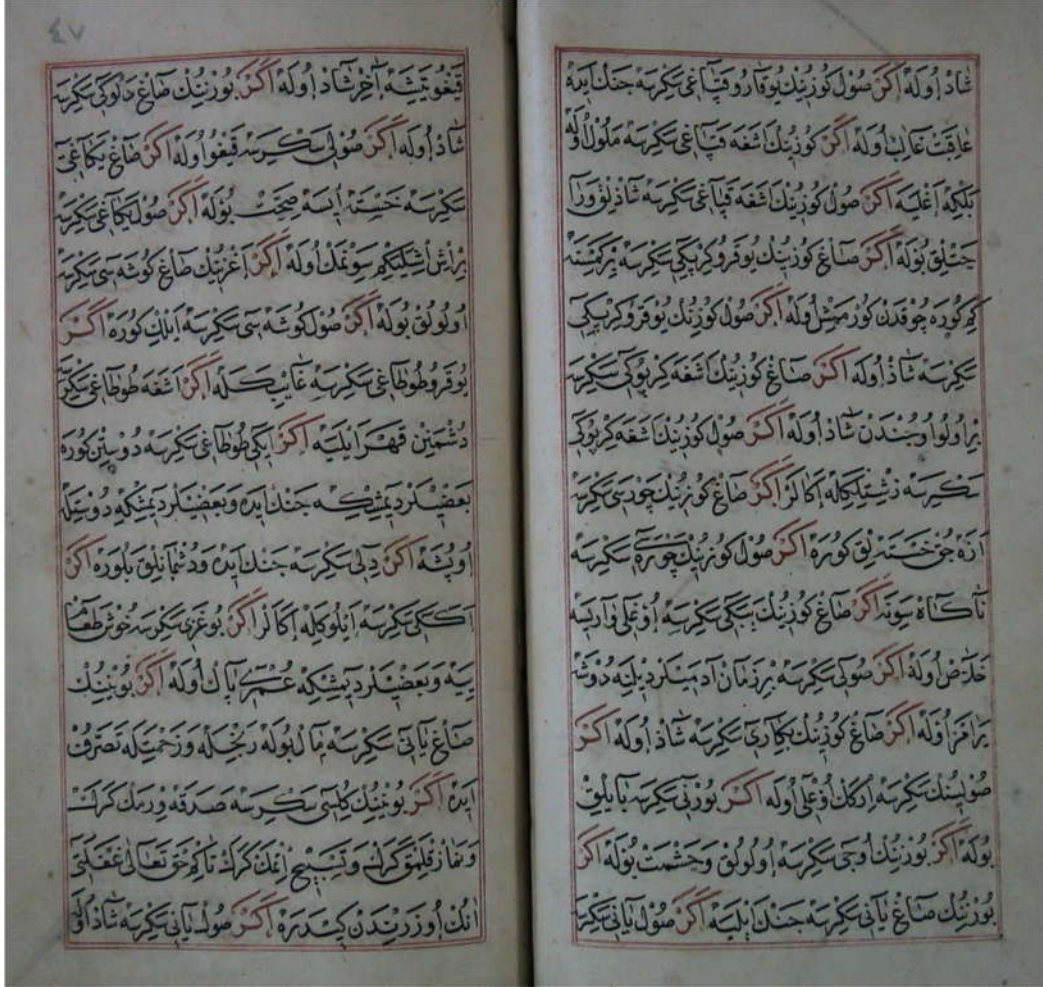 شاذ اوله اكر صول كوزينك يوقارو قپاغى سكرسه جنك ايده
عاقبت غالب اوله اكر كوزينك اشغه قپاغى سكرسه ملول اوله
بلكه اغليه اكر صول كوزينك اشغه قپاغى سكرسه شاذلق ورا
حتلق بوله اكر صاغ كوزينك يوقرو كرپكى سكرسه بر كمسنه
كم كوره چوقدن كورممش اوله اكر صول كوزينك يوقرو كرپكى
سكرسه شاذ اوله اكر صاغ كوزينك اشغه كرپوكى سكرسه
بر اولو اوجندن شاذ اوله اكر صول كوزينك اشغه كرپوكى
سكرسه اكا لر اكر صاغ كوزينك سكرسه
ازه جق خسته لق كوره اكر صول كوزينك چوره سكرسه
ناكاه سونه اكر صاغ كوزينك ببكى سكرسه اوغلى وارسه
خلاص اوله اكر صولى سكرسه بر زمان ادميلر ديلنه دوشه
يرامز اوله اكر صاغ كوزينك بكارى سكرسه شاذ اوله اكر
صولينك سكرسه اركك اوغلى اوله اكر بورنى سكرسه بايلق
بوله اكر بورنينك اوجى سكرسه اولولق وحشمت بوله اكر
بورنينك صاغ يانى سكرسه جنك ايليه اكر صول يانى سكرسه
٤٧
قيغو يتشه اخر شاذ اوله اكر بورنينك صاغ دلوكى سكرسه
شاذ اوله اكر صولى سكرسه قيغو اوله اكر صاغ يكاغى
سكرسه خسته ايسه صحت بوله اكر صول يكاغى سكرسه
بر ايش اشليكم سونمك اوله اكر اغزينك صاغ كوشه سى سكرسه
اولولق بوله اكر صول كوشه سى سكرسه ايلك كوره اكر
يوقرو طوطاغى سكرسه غايب كله اكر اشغه طوطاغى سكرسه
دشمنين قهر ايليه اكر ايكى طوطاغى سكرسه دوستين كوره
بعضيلر ديمشكه جنك ايده وبعضيلر ديمشكه دوستيله
اوپشه اكر دلى سكرسه جنك ايده ودشمانلق بلوره اكر
اككى سكرسه ايلوكله اكالر اكر بوغزى سكرسه خوش طعام
ييه وبعضيلر ديمشكه عمرى پاك اوله اكر بوينينك
صاغ يانى سكرسه مال بوله رنجله وزحمتله تصرف
ايده اكر بوينينك كليسى سكرسه صدقه ورمك كرك
ونماز قلمق كرك وتسبيح ايتمك كرك تاكم حق تعالى غفلتى
انك اوزرندن كيدره اكر صول يانى سكرسه شاذ اوله